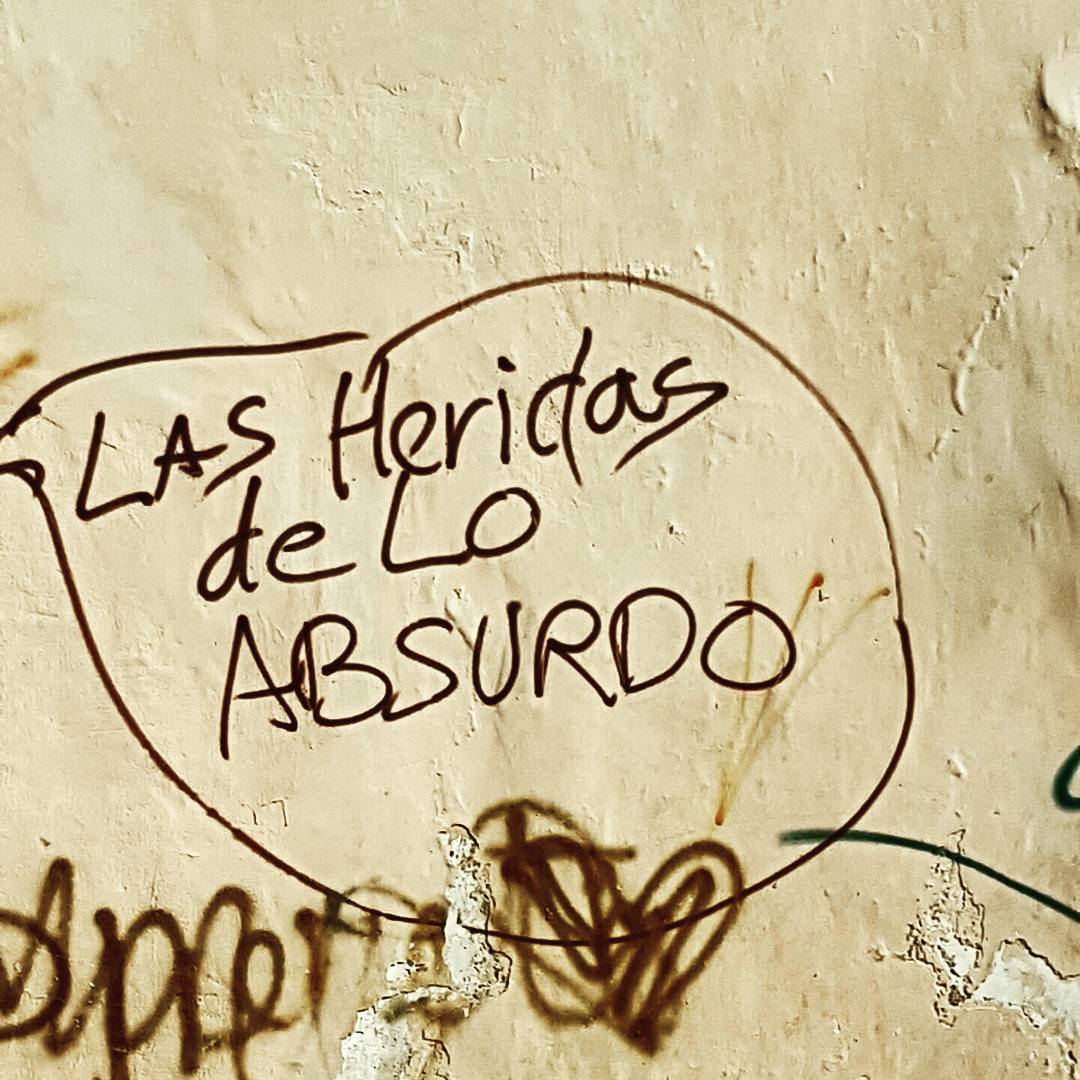 LAS Heridas
de Lo
ABSURDO